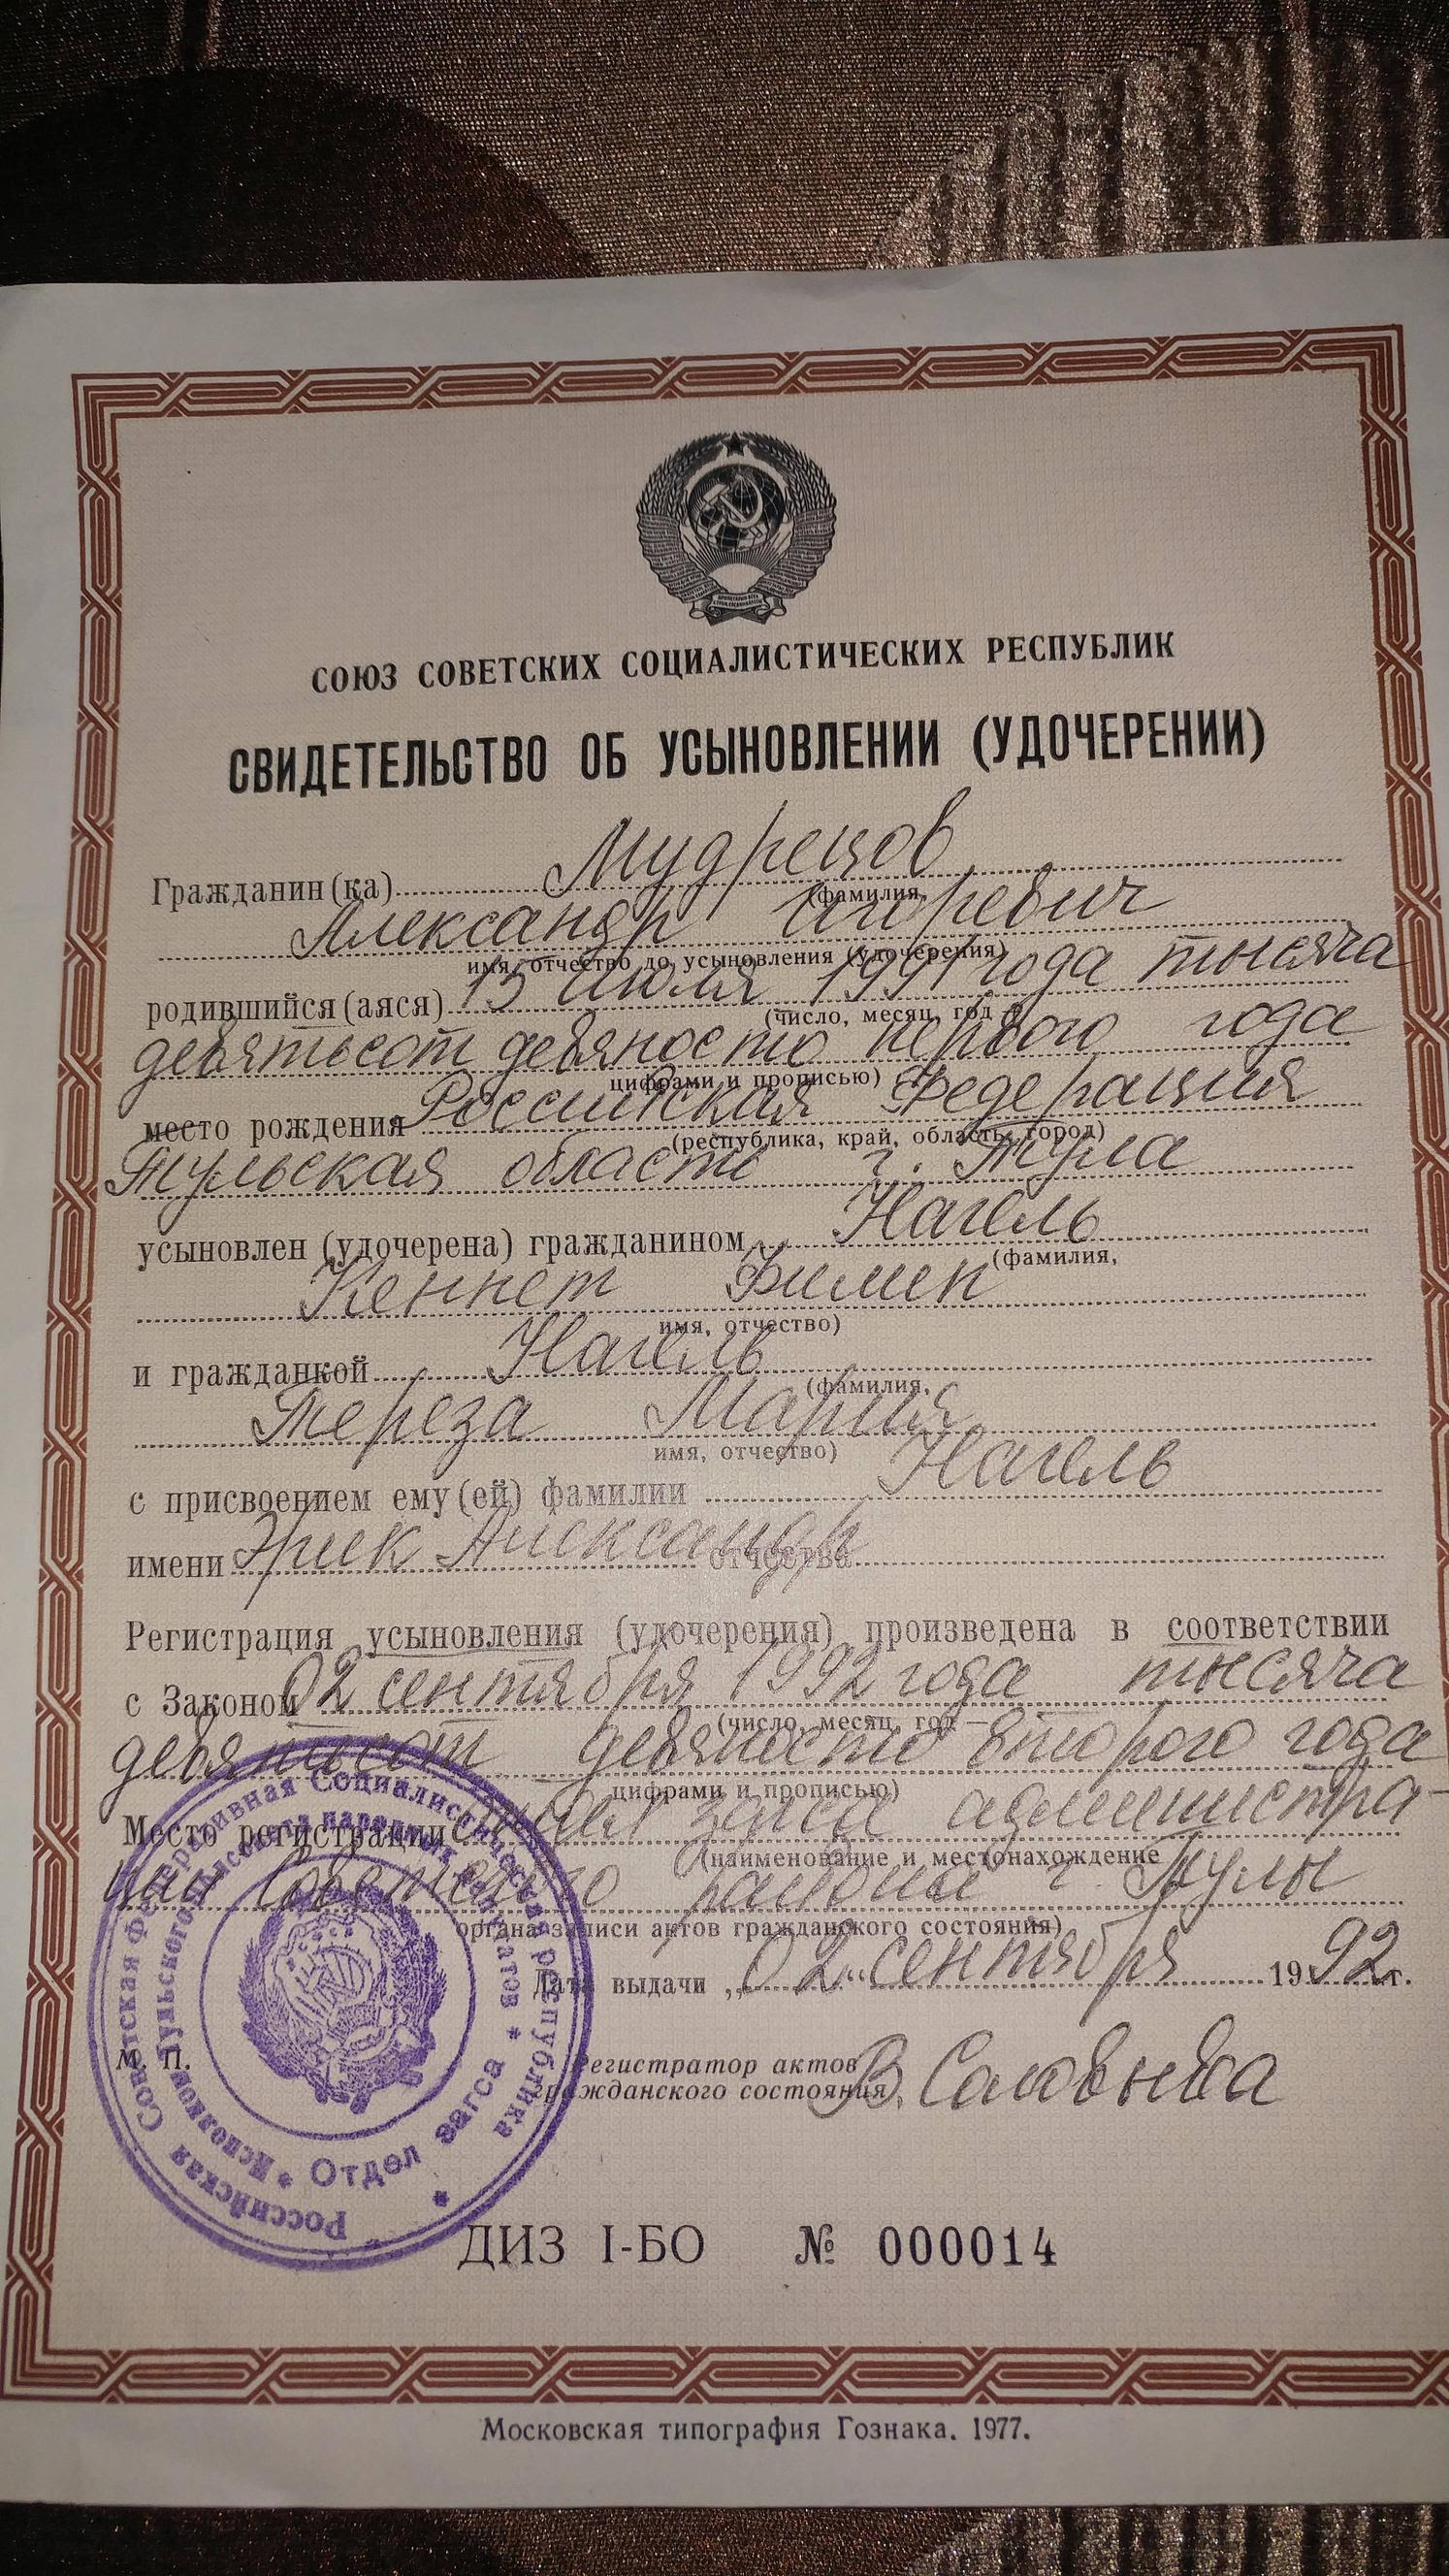 СОЮЗ СОВЕТСКИХ СОЦИАЛИСТИЧЕСКИХ РЕСПУБЛИК
СВИДЕТЕЛЬСТВО ОБ УСЫНОВЛЕНИИ (УДОЧЕРЕНИИ)
Гражданин(ка) Мудрецов
(фамилия,
Александр Игоревич
имя, отчество до усыновления (удочерения)
родившийся(аяся) 15 июля 1991 года тысяча
(число, месяц, год
девятьсот девяносто первого года
цифрами и прописью)
место рождения Российская Федерация
(республика, край, область, город)
Тульская область г. Тула
усыновлен (удочерена) гражданином Нагель
(фамилия,
Кеннет
имя, отчество)
и гражданкой Нагель
(фамилия,
Тереза Мария
имя, отчество)
с присвоением ему(ей) фамилии Нагель
имени Эрик Александр отчества
Регистрация усыновления (удочерения) произведена в соответствии
с Законом 02 сентября 1992 года тысяча
(число, месяц, год —
девятьсот девяносто второго года
цифрами и прописью)
Место регистрации отдел загса администра-
(наименование и местонахождение
ции Советского района г. Тулы
органа записи актов гражданского состояния)
Дата выдачи „02" сентября 1992 г.
М. П.
Регистратор актов
гражданского состояния В. Соловьёва
Российская Советская Федеративная Социалистическая республика
Отдел загса
ДИЗ I-БО № 000014
Московская типография Гознака. 1977.